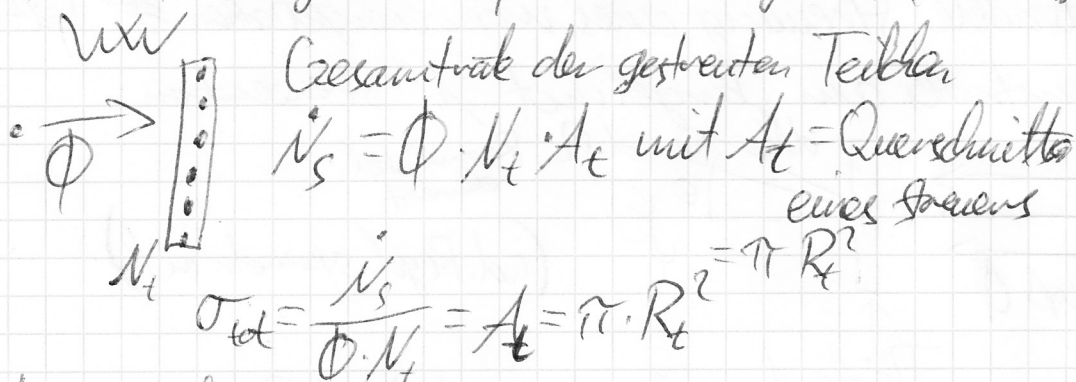 WXW
Gesamtrate der gestreuten Teilchen
Φ
Ṅ_s = Φ · N_t · A_t mit A_t = Querschnitts
eines Streuers
= π R_t²
N_t
σ_tot = Ṅ_s / (Φ · N_t) = A_t = π · R_t²